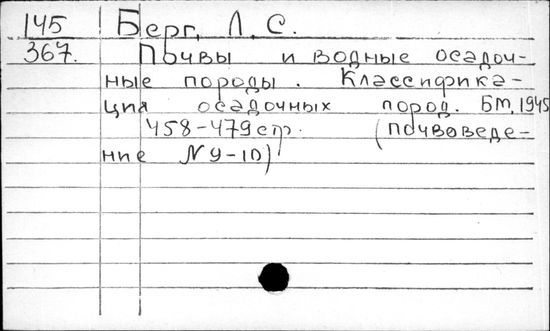 145 Берг, Л. С.
367. Почвы и водные осадоч-
ные породы. Классифика-
ция осадочных пород. БМ, 1945
458-479 стр. (почвоведе-
ние N 9-10)